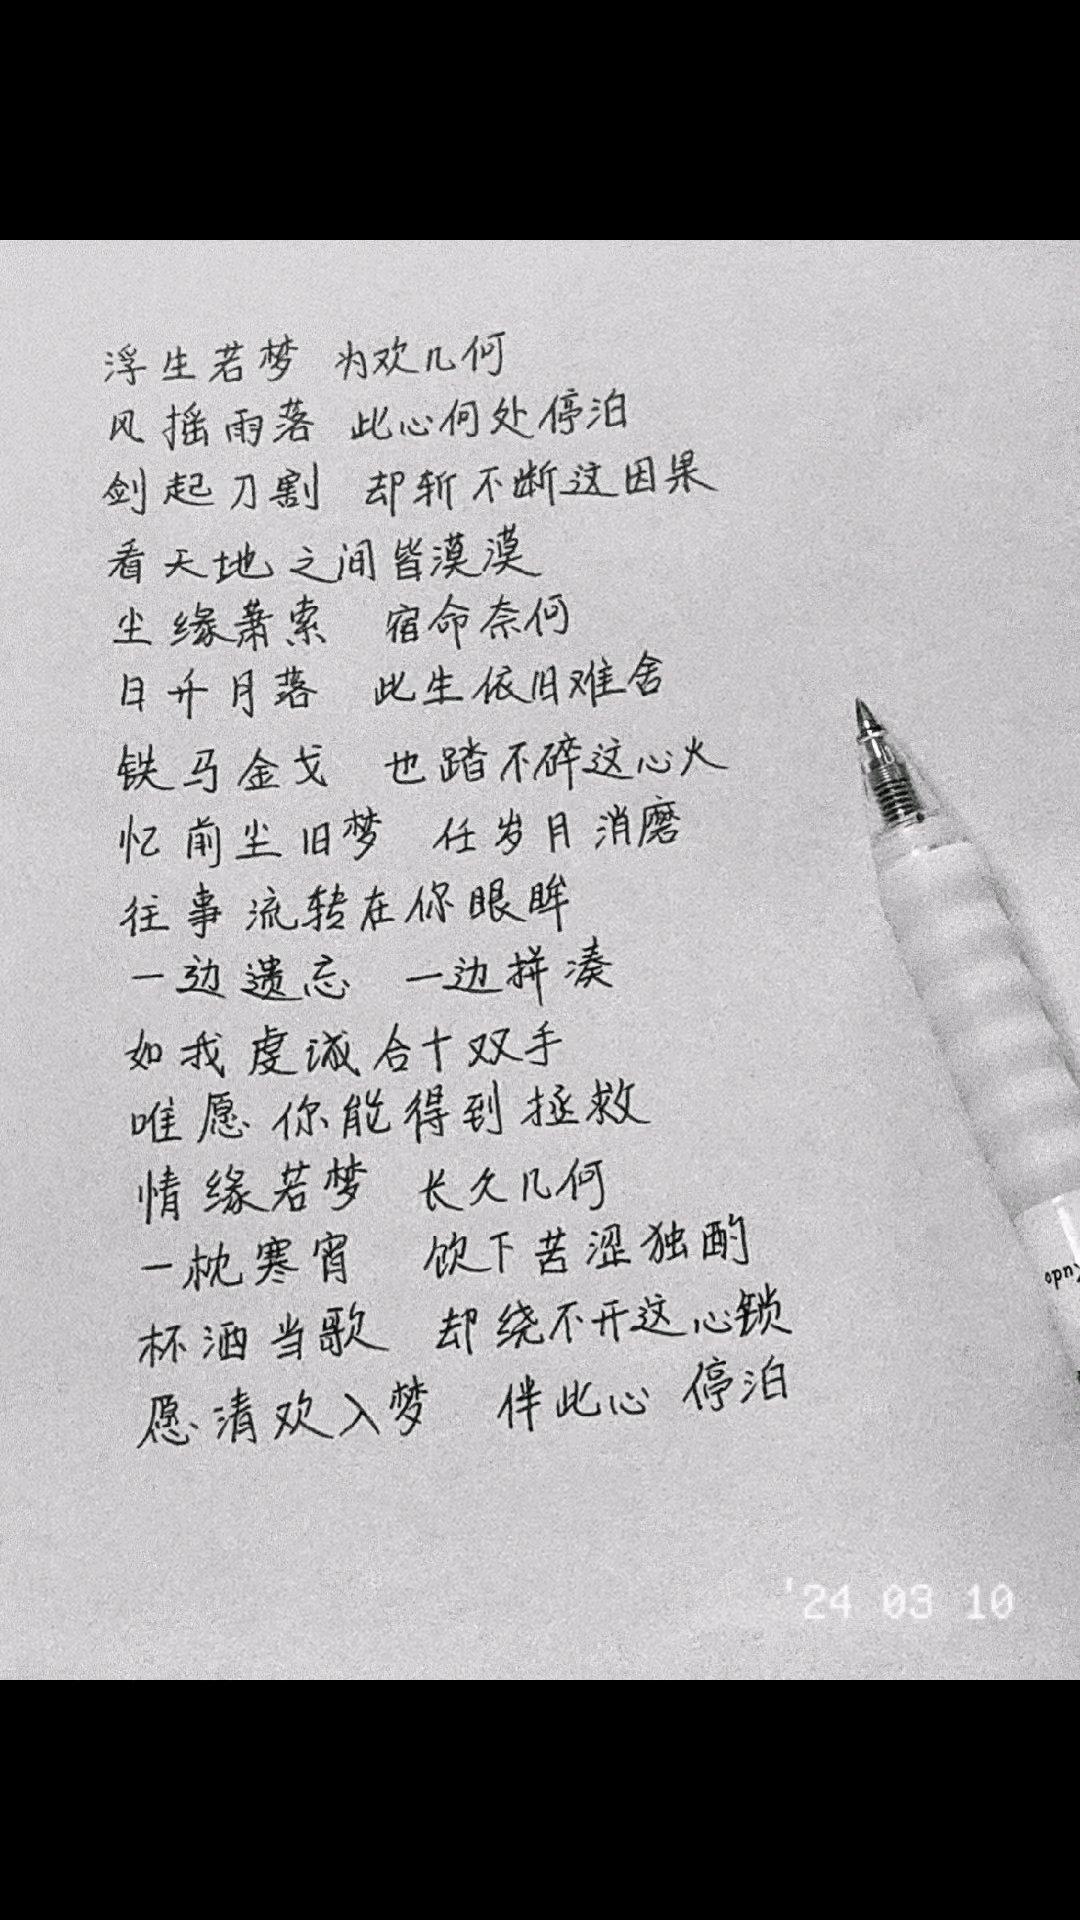 浮生若梦 为欢几何
风摇雨落 此心何处停泊
剑起刀割 却斩不断这因果
看天地之间皆漠漠
尘缘萧索 宿命奈何
日升月落 此生依旧难舍
铁马金戈 也踏不碎这心火
忆前尘旧梦 任岁月消磨
往事流转在你眼眸
一边遗忘 一边拼凑
如我虔诚合十双手
唯愿你能得到拯救
情缘若梦 长久几何
一枕寒宵 饮下苦涩独酌
杯酒当歌 却绕不开这心锁
愿清欢入梦 伴此心 停泊
Kudo
'24 03 10